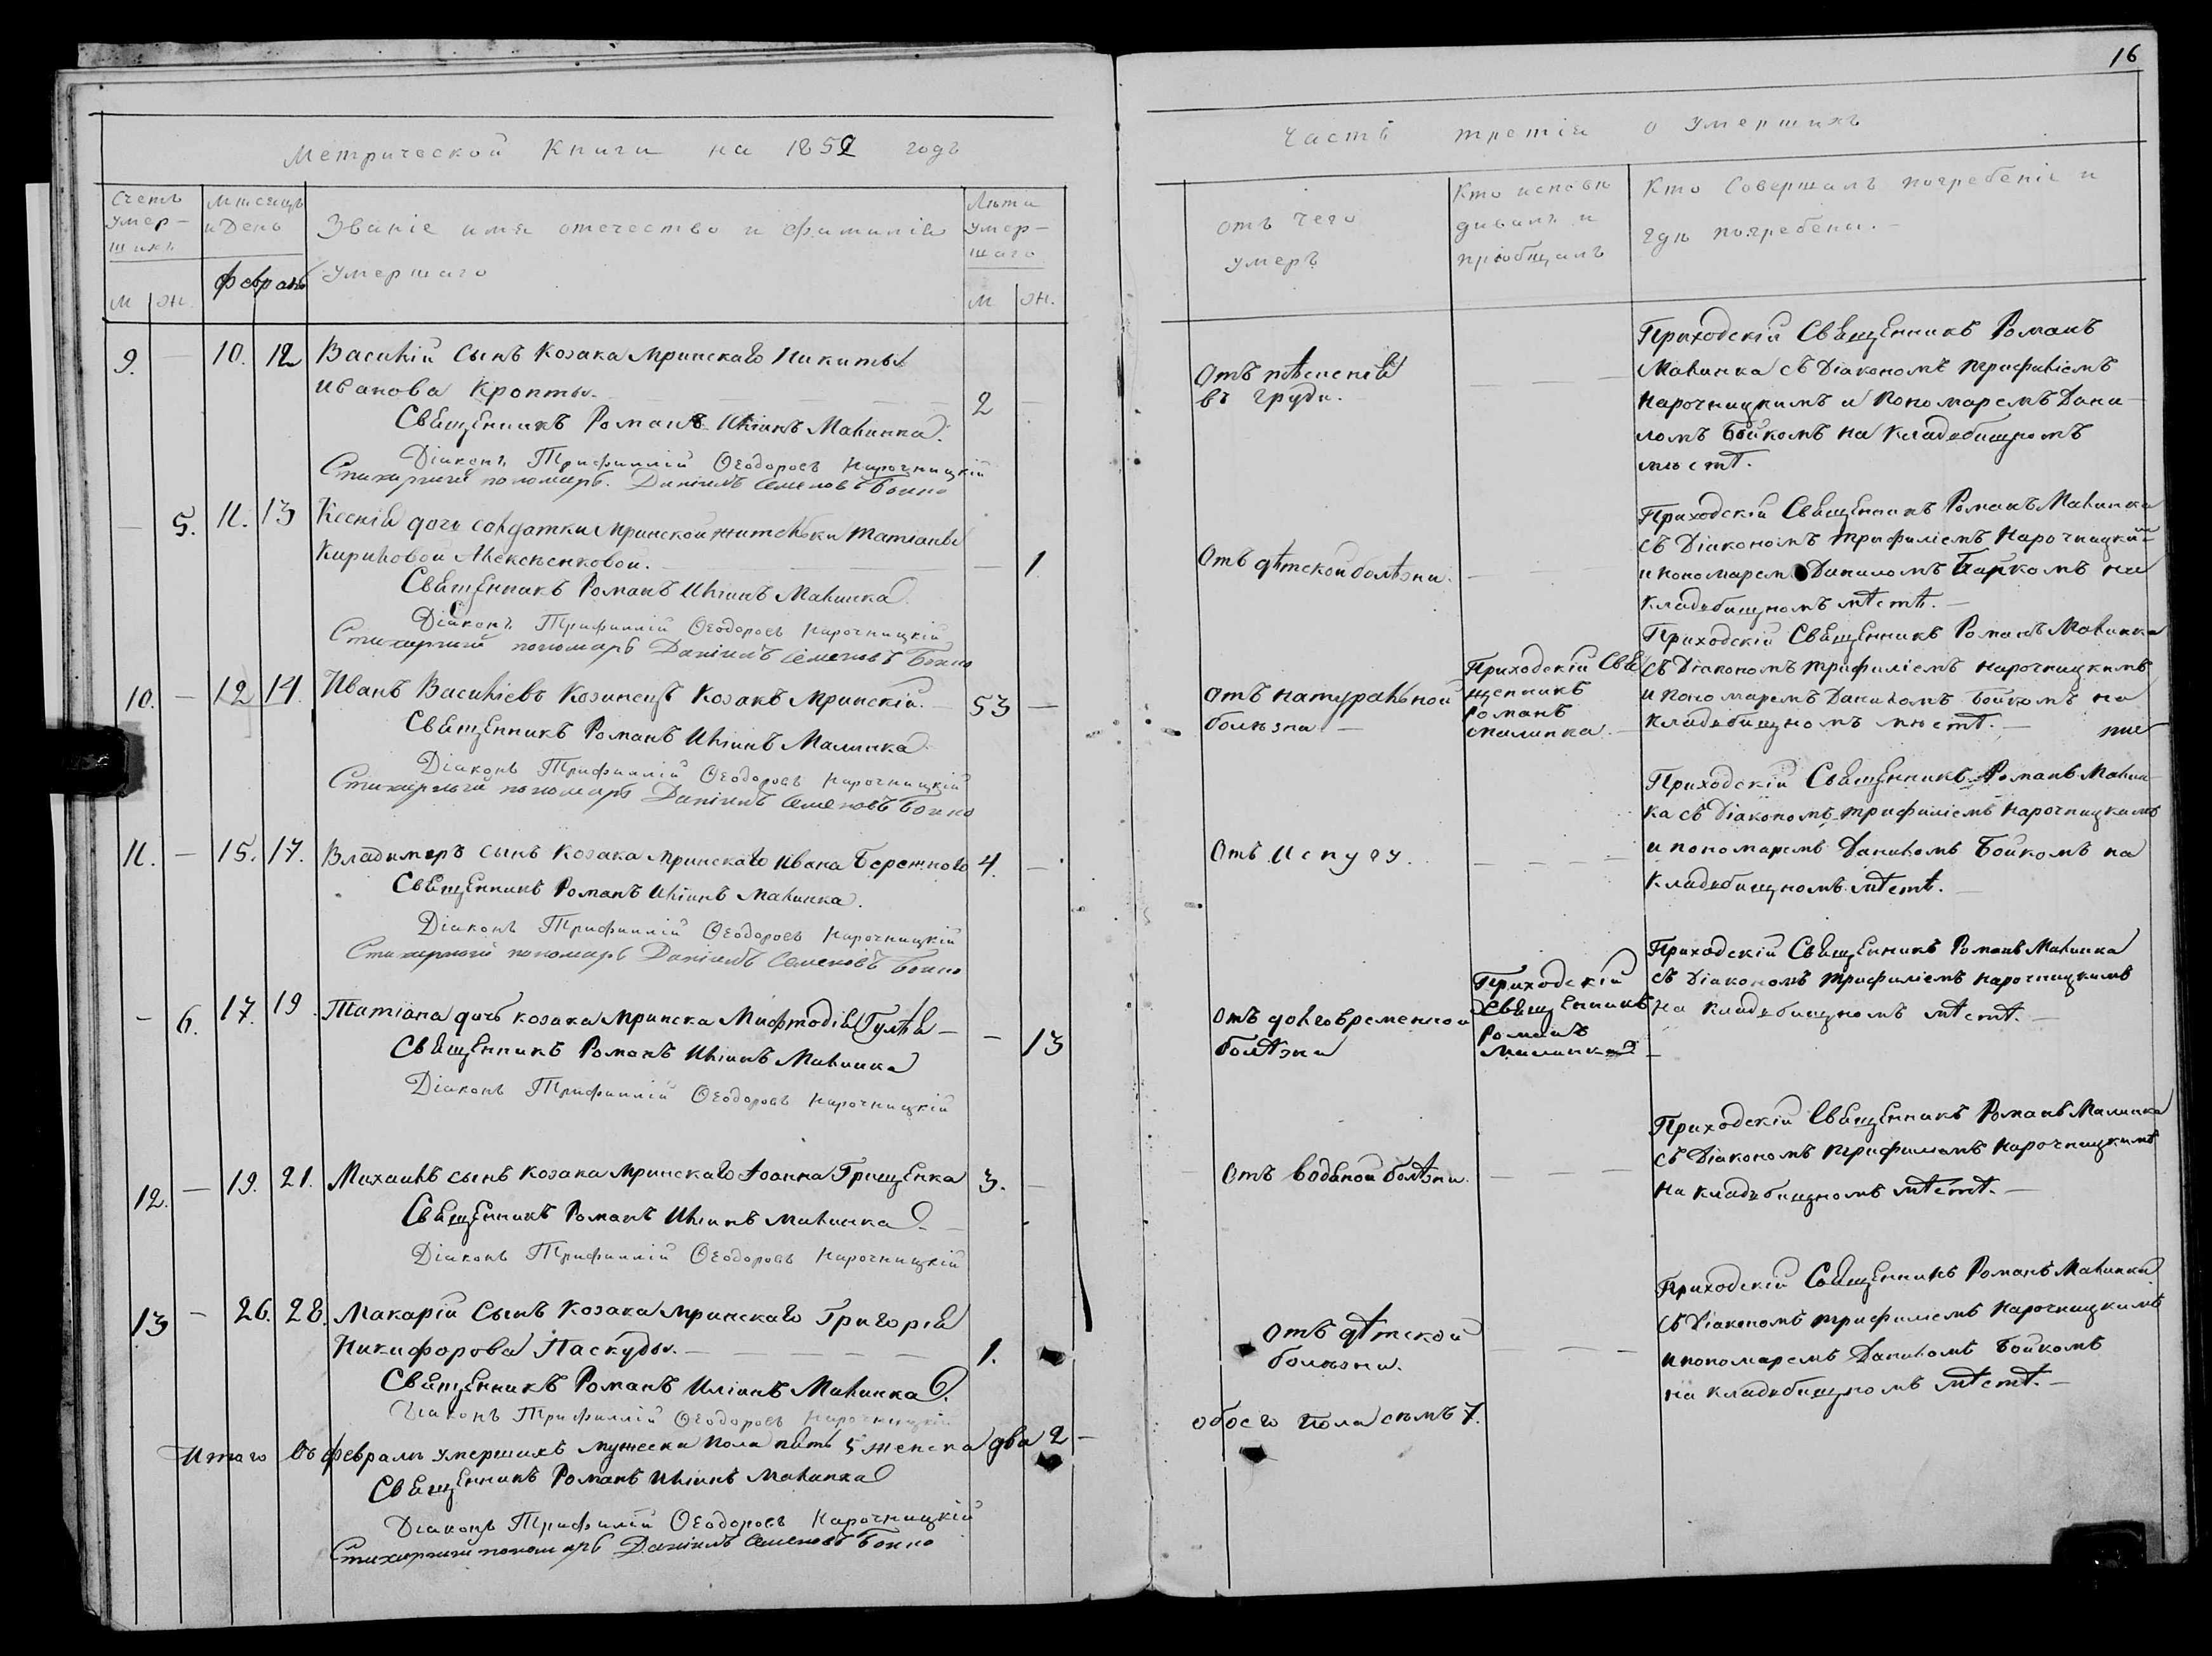 16
Метрической Книги на 1852 годъ
Часть третія о умершихъ
Счетъ умер-
шихъ
Мѣсяцъ
и День
Февраль
Званіе имя отечество и фамилія
умершаго
Лѣта
умер-
шаго
м ж. м ж.
отъ чего
умеръ
Кто исповѣ
дывалъ и
пріобщалъ
Кто совершалъ погребеніе и
гдѣ погребены.
9. — 10. 12 Василій сынъ козака Мринскаго Никиты
Иванова Кропты. 2 —
Священникъ Романъ Иліинъ Малинка.
Діаконъ Трифиллій Ѳеодоровъ Нарочницкій
Стихарный пономарь Даніилъ Семеновъ Бойко
Отъ тѣсненія
въ груди.
Приходскій Священникъ Романъ
Малинка съ Діакономъ Трифиліемъ
Нарочницкимъ и Пономаремъ Дани
ломъ Бойкомъ на кладобищномъ
мѣстѣ.
— 5. 11. 13 Ксенія дочь солдатки Мринской жительки Татіаны
Кириловой Алексѣенковой. — 1
Священникъ Романъ Иліинъ Малинка.
Діаконъ Трифиллій Ѳеодоровъ Нарочницкій
Стихарный пономарь Даніилъ Семеновъ Бойко
Отъ дѣтской болѣзни.
Приходскій Священникъ Романъ Малинка
съ Діакономъ Трифиліемъ Нарочницки
и пономарем Даниломъ Бойкомъ на
кладобищномъ мѣстѣ.
10. — 12 14. Иванъ Василіевъ Козинецъ Козакъ Мринскій. 53 —
Священникъ Романъ Иліинъ Малинка
Діаконъ Трифиллій Ѳеодоровъ Нарочницкій
Стихарный пономарь Даніилъ Семеновъ Бойко
Отъ натуральной
болѣзни. —
Приходскій Свя
щенникъ
Романъ
Малинка.
Приходскій Священникъ Романъ Малинка
съ Діакономъ Трифиліемъ Нарочницкимъ
и пономаремъ Даниломъ Бойкомъ на
кладобищномъ мѣстѣ. —
11. — 15. 17. Владимеръ сынъ козака Мринскаго Ивана Бережного 4. —
Священникъ Романъ Иліинъ Малинка.
Діаконъ Трифиллій Ѳеодоровъ Нарочницкій
Стихарный пономарь Даніилъ Семеновъ Бойко
Отъ Испугу.
Приходскій Священникъ Романъ Малин-
ка съ Діакономъ Трифиліемъ Нарочницкимъ
и пономаремъ Даниломъ Бойкомъ на
кладобищномъ мѣстѣ.
— 6. 17. 19. Татіана дочь козака Мринска Мифтодія Гулѣя — — 13
Священникъ Романъ Иліинъ Малинка
Діаконъ Трифиллій Ѳеодоровъ Нарочницкій
Отъ долговременной
болѣзни
Приходскій
Священникъ
Романъ
Малинка
Приходскій Священникъ Романъ Малинка
съ Діакономъ Трифиліемъ Нарочницкимъ
на кладобищномъ мѣстѣ. —
12. — 19. 21. Михаилъ сынъ козака Мринскаго Іоанна Грищенка 3. —
Священникъ Романъ Иліинъ Малинка
Діаконъ Трифиллій Ѳеодоровъ Нарочницкій
Отъ водяной болѣзни.
Приходскій Священникъ Романъ Малинка
съ Діакономъ Трифиліемъ Нарочницкимъ
на кладобищномъ мѣстѣ. —
13 — 26. 28. Макарій сынъ козака Мринскаго Григорія
Никифорова Паскуды. 1.
Священникъ Романъ Иліинъ Малинка.
Діаконъ Трифиллій Ѳеодоровъ Нарочницкій
Отъ дѣтской
болѣзни.
Приходскій Священникъ Романъ Малинка
съ Діакономъ Трифиліемъ Нарочницкимъ
и пономаремъ Даниломъ Бойкомъ
на кладобищномъ мѣстѣ. —
Итого въ февралѣ умершихъ мужеска пола пять 5 женска два 2 —
обоего пола семь 7.
Священникъ Романъ Иліинъ Малинка
Діаконъ Трифилій Ѳеодоровъ Нарочницкій
Стихарный пономарь Даніилъ Семеновъ Бойко